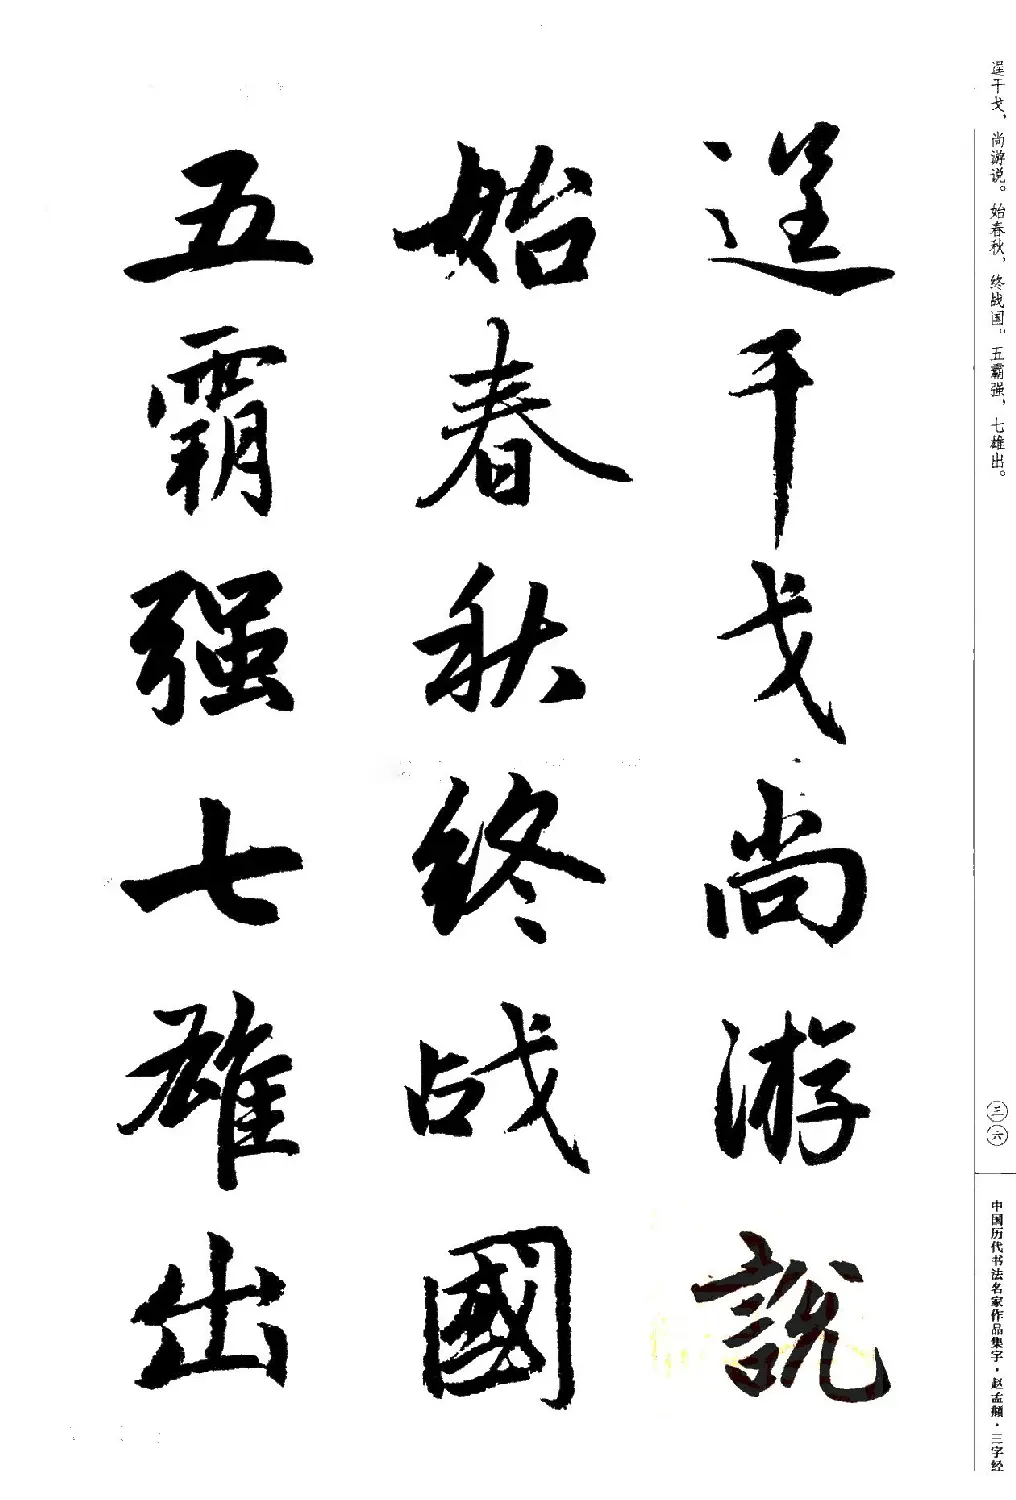 逞干戈，尚游说。始春秋，终战国。五霸强，七雄出。
逞干戈尚游說
始春秋终战國
五霸强七雄出
三六
中国历代书法名家作品集字·赵孟頫·三字经